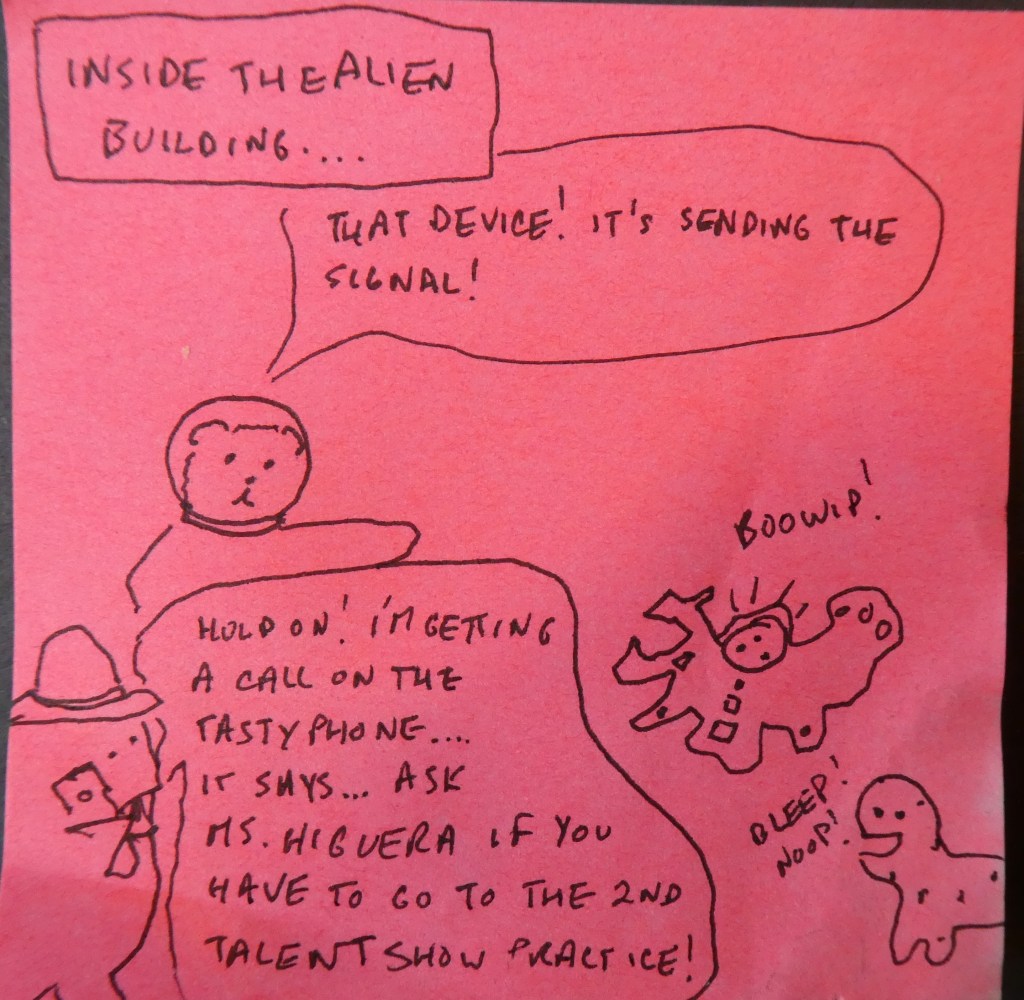 INSIDE THE ALIEN
BUILDING....
THAT DEVICE! IT'S SENDING THE
SIGNAL!
BOOWIP!
HOLD ON! I'M GETTING
A CALL ON THE
TASTYPHONE....
IT SAYS... ASK
MS. HIGUERA IF YOU
HAVE TO GO TO THE 2ND
TALENT SHOW PRACTICE!
BLEEP!
NOOP!